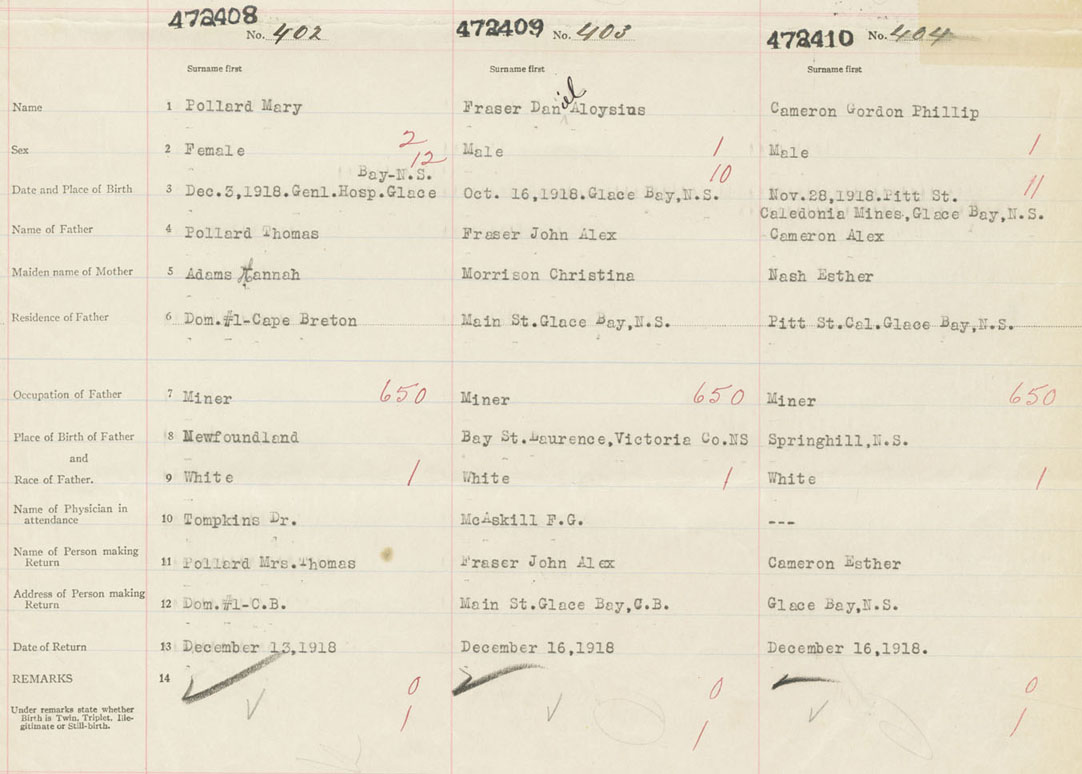 472408 No. 402 472409 No. 403 472410 No. 404
Surname first Surname first Surname first
Name 1 Pollard Mary Fraser Daniel Aloysius Cameron Gordon Phillip
Sex 2 Female 2 Male 1 Male 1
12 10 11
Bay-N.S.
Date and Place of Birth 3 Dec.3,1918.Genl.Hosp.Glace Oct. 16,1918.Glace Bay,N.S. Nov.28,1918.Pitt St.
Caledonia Mines,Glace Bay,N.S.
Name of Father 4 Pollard Thomas Fraser John Alex Cameron Alex
Maiden name of Mother 5 Adams Hannah Morrison Christina Nash Esther
Residence of Father 6 Dom.#1-Cape Breton Main St.Glace Bay,N.S. Pitt St.Cal.Glace Bay,N.S.
Occupation of Father 7 Miner 650 Miner 650 Miner 650
Place of Birth of Father 8 Newfoundland Bay St.Laurence,Victoria Co.NS Springhill,N.S.
and
Race of Father. 9 White 1 White 1 White 1
Name of Physician in
attendance 10 Tompkins Dr. McAskill F.G. ---
Name of Person making
Return 11 Pollard Mrs.Thomas Fraser John Alex Cameron Esther
Address of Person making
Return 12 Dom.#1-C.B. Main St.Glace Bay,C.B. Glace Bay,N.S.
Date of Return 13 December 13,1918 December 16,1918 December 16,1918.
REMARKS 14 0 0 0
Under remarks state whether
Birth is Twin, Triplet, Ille-
gitimate or Still-birth. 1 1 1